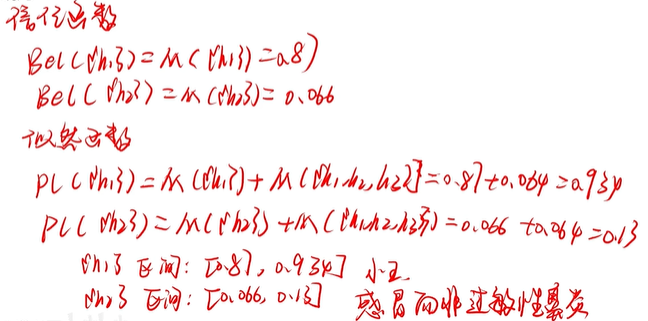 信任函数
Bel({h1})=M({h1})=0.87
Bel({h2})=M({h2})=0.066
似然函数
Pl({h1})=M({h1})+M({h1,h2,h3})=0.87+0.064=0.934
Pl({h2})=M({h2})+M({h1,h2,h3})=0.066+0.064=0.13
{h1}区间:[0.87,0.934] 小王
{h2}区间:[0.066,0.13] 感冒而非过敏性鼻炎